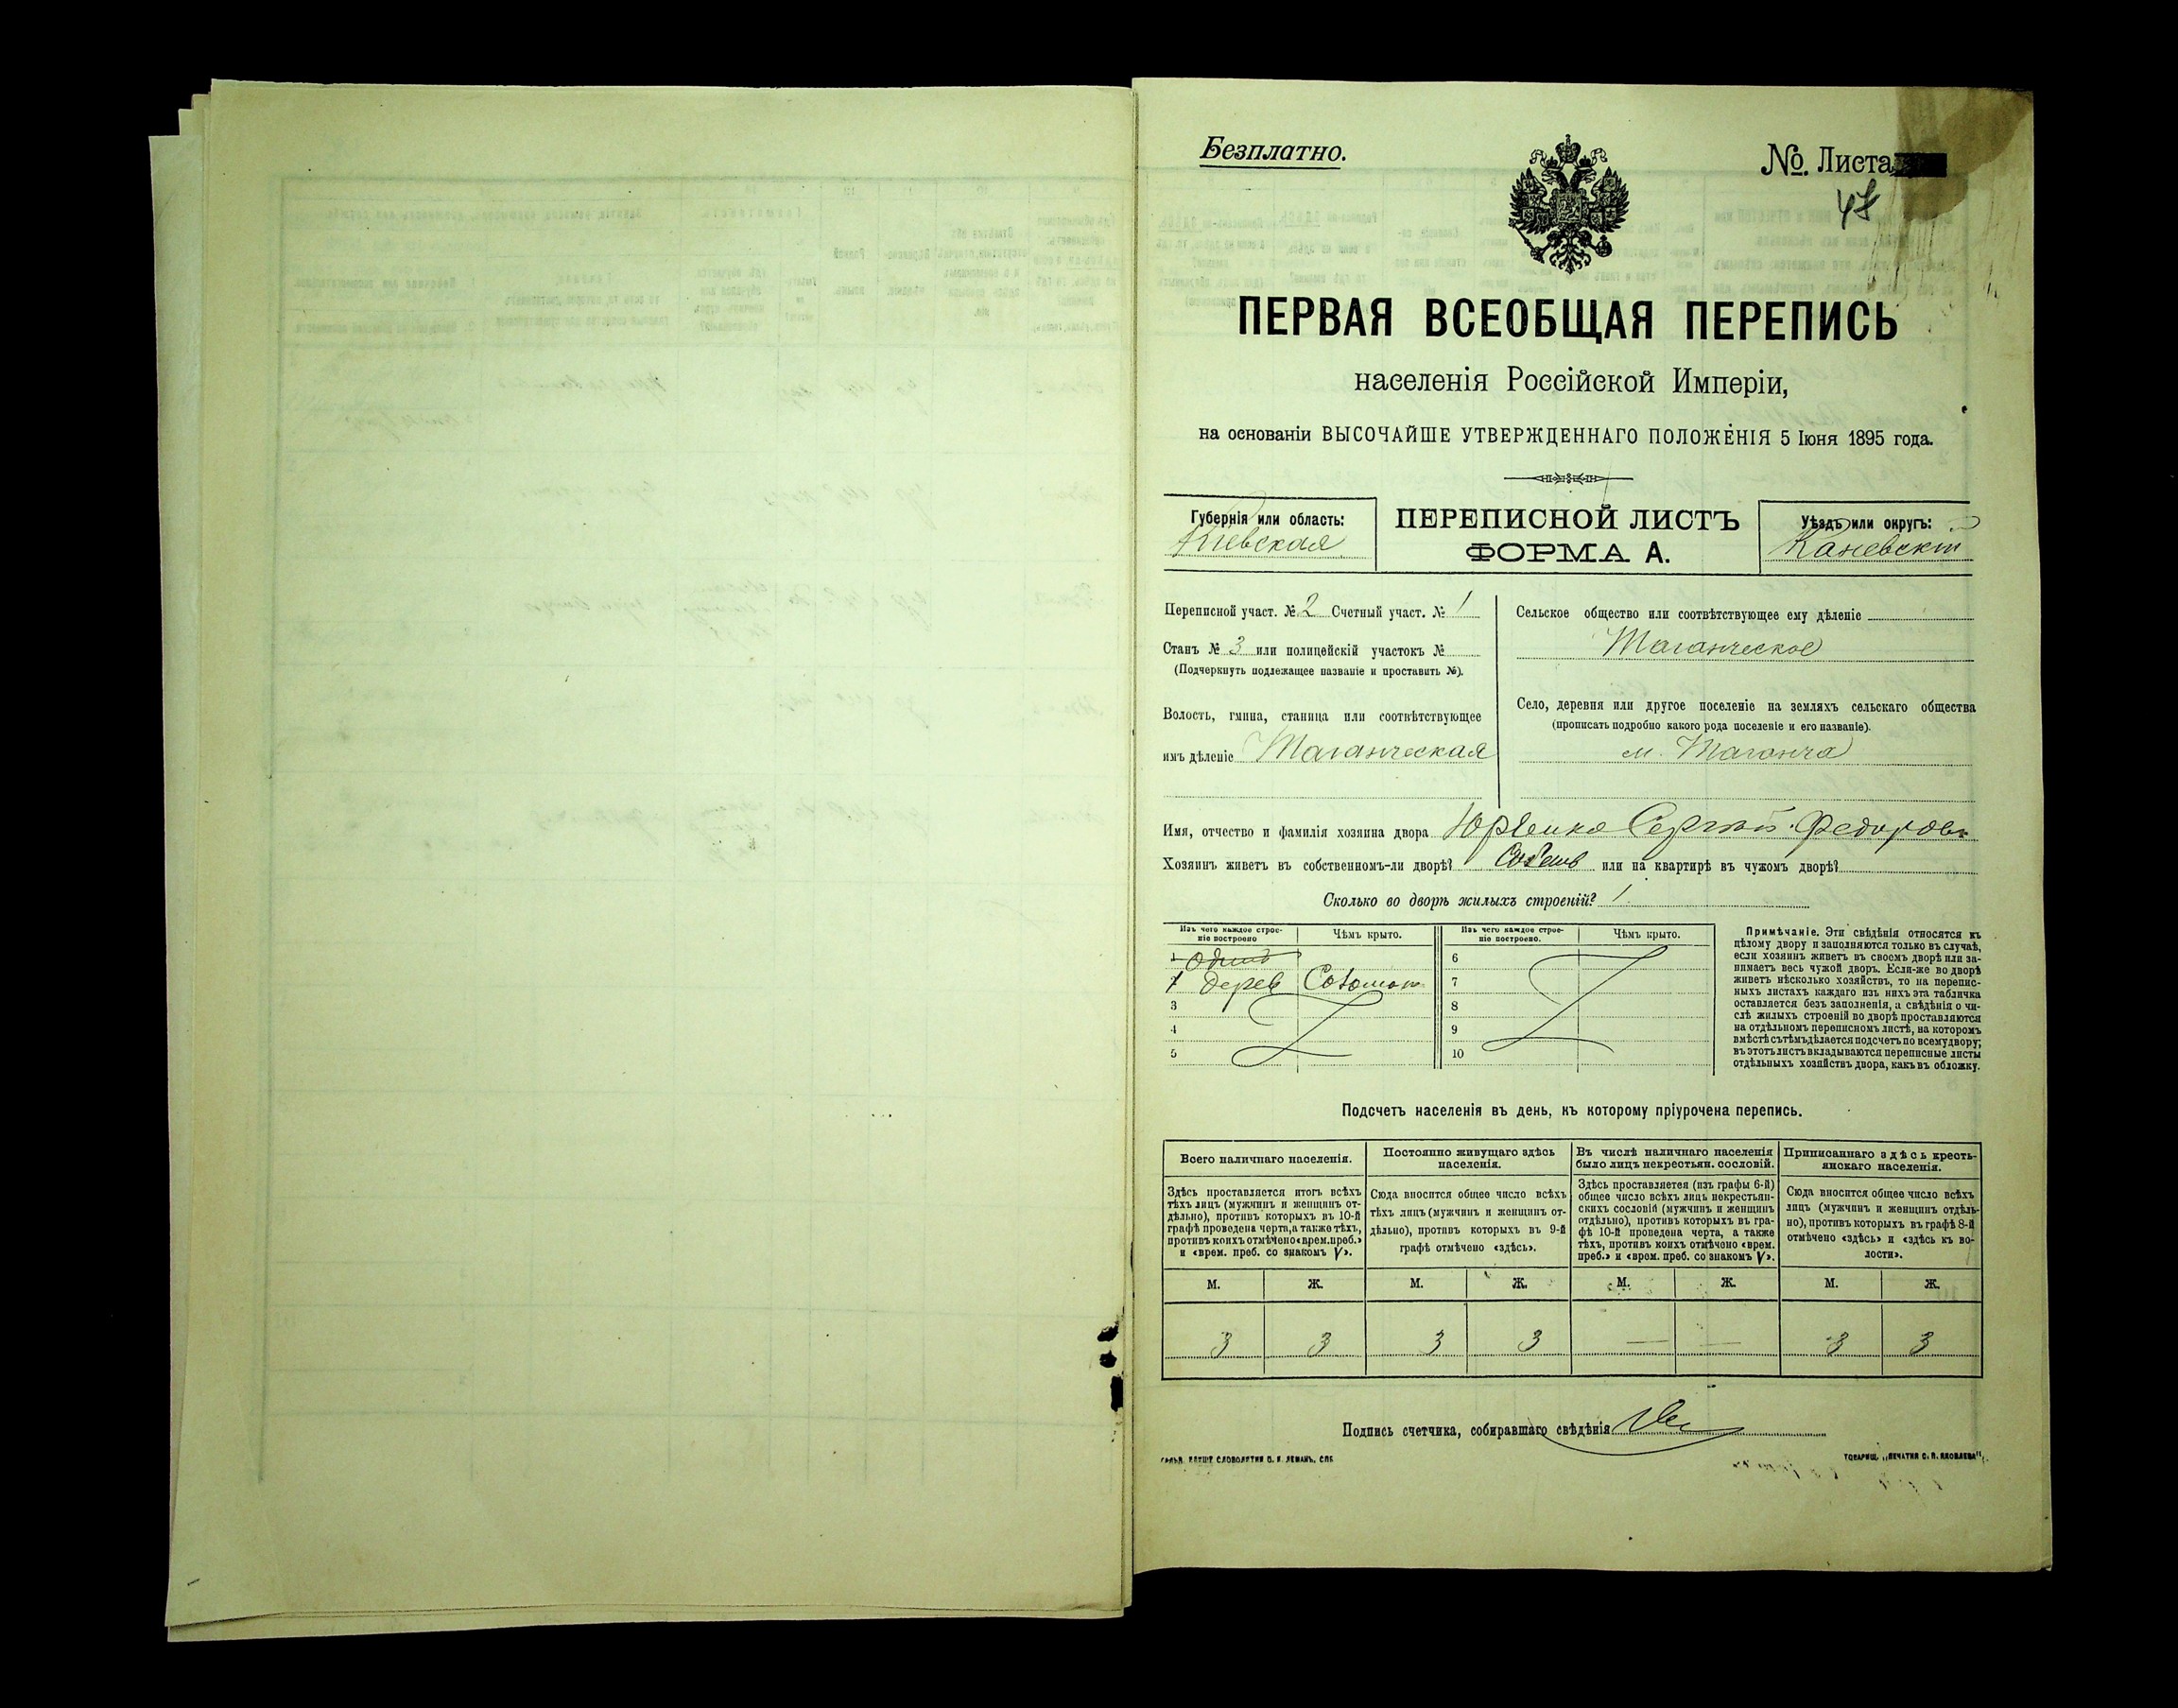 Безплатно.
№. Листа
47
ПЕРВАЯ ВСЕОБЩАЯ ПЕРЕПИСЬ
населенія Россійской Имперіи,
на основаніи ВЫСОЧАЙШЕ УТВЕРЖДЕННАГО ПОЛОЖЕНІЯ 5 Іюня 1895 года.
Губернія или область:
Кіевская
ПЕРЕПИСНОЙ ЛИСТЪ
ФОРМА А.
Уѣздъ или округъ:
Каневскій
Переписной участ. № 2 Счетный участ. № 1
Станъ № 3 или полицейскій участокъ №
(Подчеркнуть подлежащее названіе и проставить №).
Волость, гмина, станица или соотвѣтствующее
имъ дѣленіе Таганческая
Сельское общество или соотвѣтствующее ему дѣленіе
Таганческое
Село, деревня или другое поселеніе на земляхъ сельскаго общества
(прописать подробно какого рода поселеніе и его названіе).
м. Таганча
Имя, отчество и фамилія хозяина двора Юрченко Сергій Федоров
Хозяинъ живетъ въ собственномъ-ли дворѣ? или на квартирѣ въ чужомъ дворѣ?
Сколько во дворѣ жилыхъ строеній? 1
Изъ чего каждое строе-
ніе построено
Чѣмъ крыто.
Изъ чего каждое строе-
ніе построено.
Чѣмъ крыто.
1
1 дерев Соломою
3
4
5
6
7
8
9
10
Примѣчаніе. Эти свѣдѣнія относятся къ
цѣлому двору и заполняются только въ случаѣ,
если хозяинъ живетъ въ своемъ дворѣ или за-
нимаетъ весь чужой дворъ. Если-же во дворѣ
живетъ нѣсколько хозяйствъ, то на перепис-
ныхъ листахъ каждаго изъ нихъ эта табличка
оставляется безъ заполненія, а свѣдѣнія о чи-
слѣ жилыхъ строеній во дворѣ проставляются
на отдѣльномъ переписномъ листѣ, на которомъ
вмѣстѣ съ тѣмъ дѣлается подсчетъ по всему двору;
въ этотъ листъ вкладываются переписные листы
отдѣльныхъ хозяйствъ двора, какъ въ обложку.
Подсчетъ населенія въ день, къ которому пріурочена перепись.
Всего наличнаго населенія.
Здѣсь проставляется итогъ всѣхъ
тѣхъ лицъ (мужчинъ и женщинъ от-
дѣльно), противъ которыхъ въ 10-й
графѣ проведена черта, а также тѣхъ,
противъ коихъ отмѣчено «врем. преб.»
и «врем. преб. со знакомъ V».
Постоянно живущаго здѣсь
населенія.
Сюда вносится общее число всѣхъ
тѣхъ лицъ (мужчинъ и женщинъ от-
дѣльно), противъ которыхъ въ 9-й
графѣ отмѣчено «здѣсь».
Въ числѣ наличнаго населенія
было лицъ некрестьян. сословій.
Здѣсь проставляется (изъ графы 6-й)
общее число всѣхъ лицъ некрестьян-
скихъ сословій (мужчинъ и женщинъ
отдѣльно), противъ которыхъ въ гра-
фѣ 10-й проведена черта, а также
тѣхъ, противъ коихъ отмѣчено «врем.
преб.» и «врем. преб. со знакомъ V».
Приписаннаго здѣсь кресть-
янскаго населенія.
Сюда вносится общее число всѣхъ
лицъ (мужчинъ и женщинъ отдѣль-
но), противъ которыхъ въ графѣ 8-й
отмѣчено «здѣсь» и «здѣсь къ во-
лости».
М. Ж. М. Ж. М. Ж. М. Ж.
3 3 3 3 — — 3 3
Подпись счетчика, собиравшаго свѣдѣнія
СЛОВОЛИТНИ О. И. ЛЕМАНЪ, СПБ
ТОВАРИЩ. „ПЕЧАТНЯ С. П. ЯКОВЛЕВА“